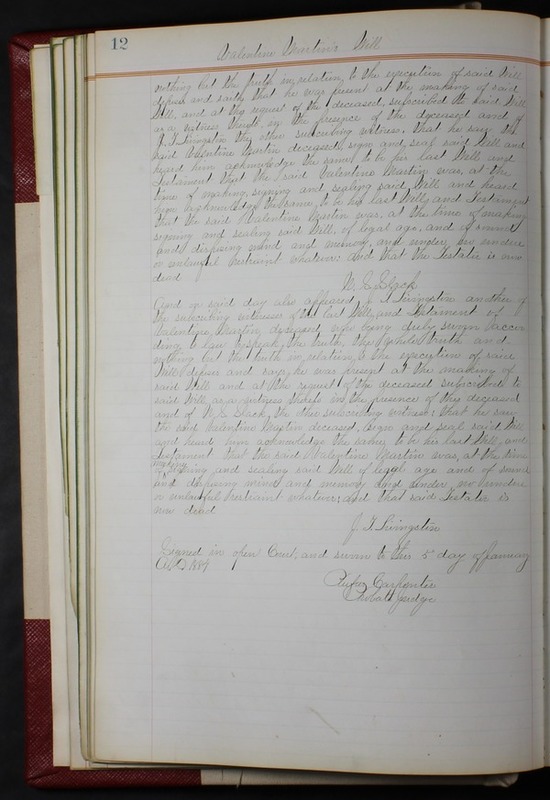 12
Valentine Martin's Will
nothing but the truth in relation to the execution of said Will
deposes and saith that he was present at the making of said
Will, and at the request of the deceased, subscribed the said Will
as a witness thereto, in the presence of the deceased and of
J. T. Livingston the other subscribing witness. that he saw the
said Valentine Martin deceased, sign and seal said Will and
heard him acknowledge the same to be his last Will and
Testament that the said Valentine Martin was, at the
time of making, signing and sealing said Will and heard
him acknowledge the same to be his last Will and Testament
that the said Valentine Martin was, at the time of making
signing and sealing said Will, of legal age, and of sound
and disposing mind and memory, and under no undue
or unlawful restraint whatever: and that the Testator is now
dead
Slack
And on said day also appeared J. T. Livingston another of
the subscribing witnesses of the last Will and Testament of
Valentine Martin, deceased, who being duly sworn accor
ding to law to speak the truth, the whole truth and
nothing but the truth in relation to the execution of said
Will, deposes and says, he was present at the making of
said Will and at the request of the deceased subscribed to
said Will as a witness thereto in the presence of the deceased
and of Slack, the other subscribing witness: that he saw
the said Valentine Martin deceased, sign and seal said Will
and heard him acknowledge the same to be his last Will, and
Testament that the said Valentine Martin was, at the time
making
of signing and sealing said Will of legal age and of sound
and disposing mind and memory and under no undue
or unlawful restraint whatever; and that said Testator is
now dead
J. T. Livingston
Signed in open Court, and sworn to this 5 day of January
AD
Rufus Carpenter
Probate Judge